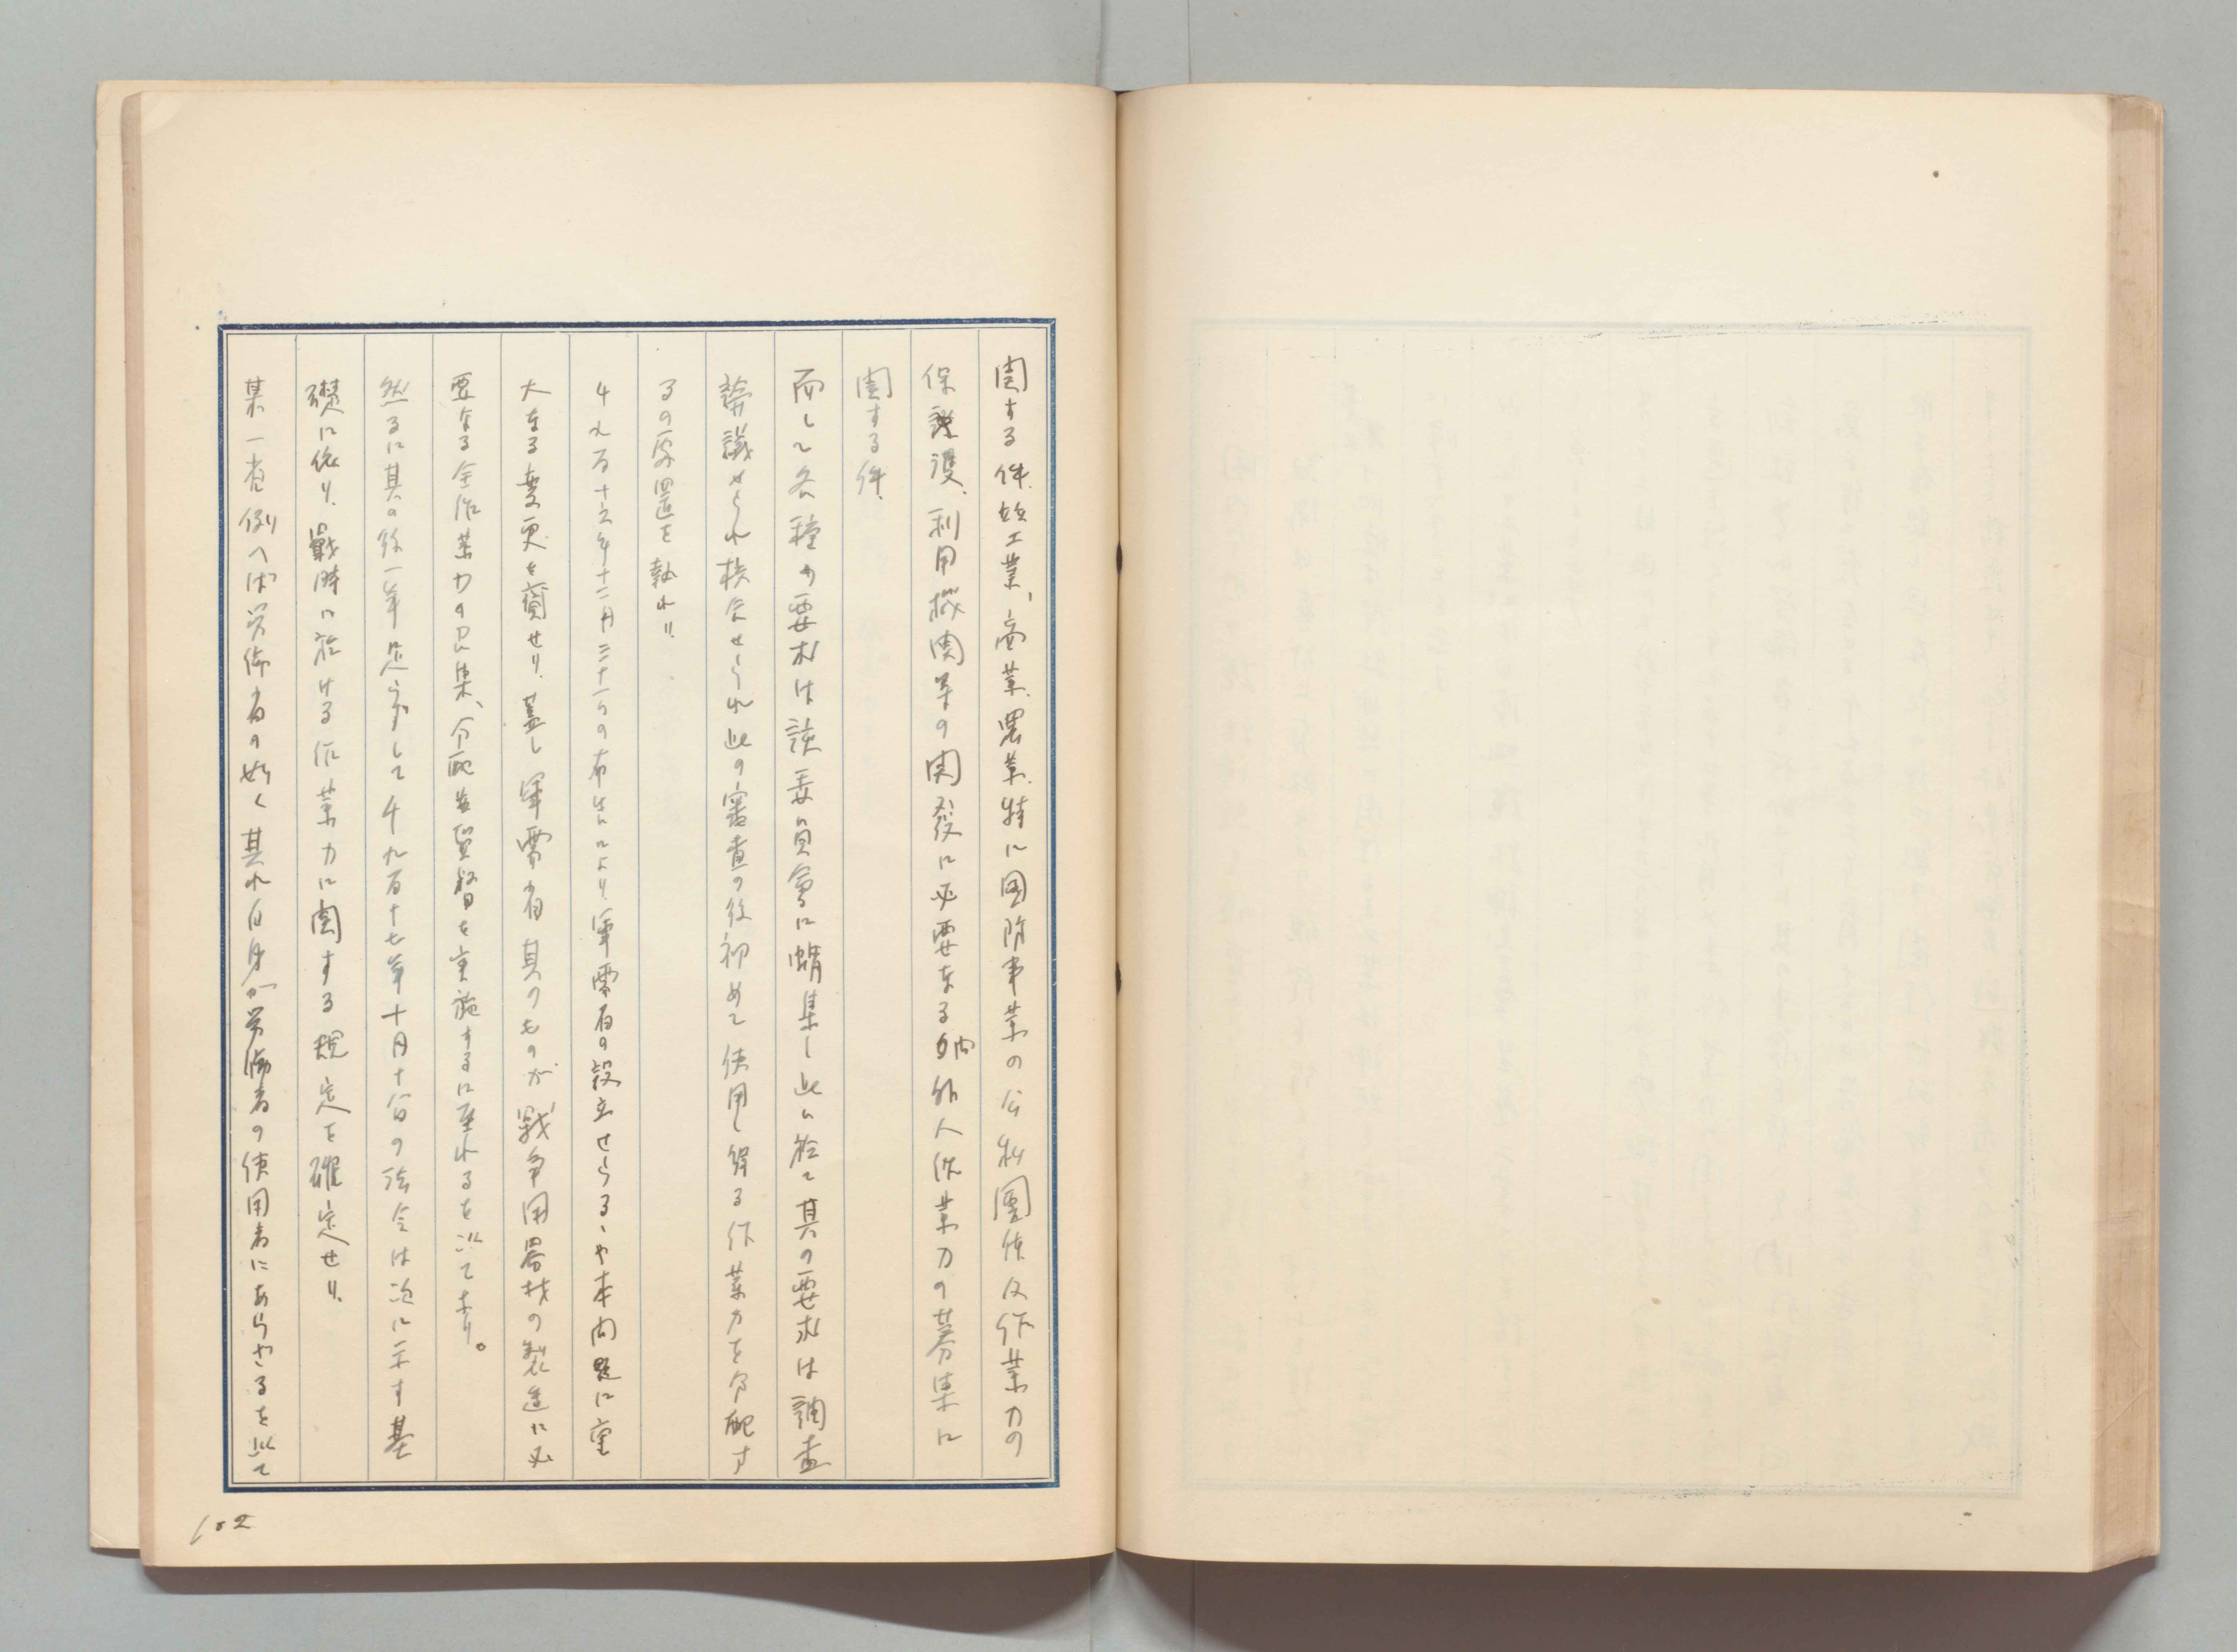 関する件、竝工業、商業、農業、特に國防事業の公私團体及作業力の
保護、利用機関等の開発に必要なる内外人作業力の募集に
関する件、
而して各種の要求は該委員會に蝟集し此に於て其の要求は調査
論議せられ検合せられ此の審査の後初めて使用し得る作業力を分配す
るの処置を執れり
千九百十六年十二月三十一日の布告により軍需省の設立せらるゝや本問題に重
大なる変更を齎せり、蓋し軍需省其のものが戦争用器材の製造に必
要なる全作業力の召集、分配並監督を実施するに至れるを以てなり。
然るに其の後一年足らずして千九百十七年十月十八日の法令は次に示す基
礎に依り、戰時に於ける作業力に関する規定を確定せり、
某一省例へば労働省の如く其れ自身が労働者の使用者にあらざるを以て
102